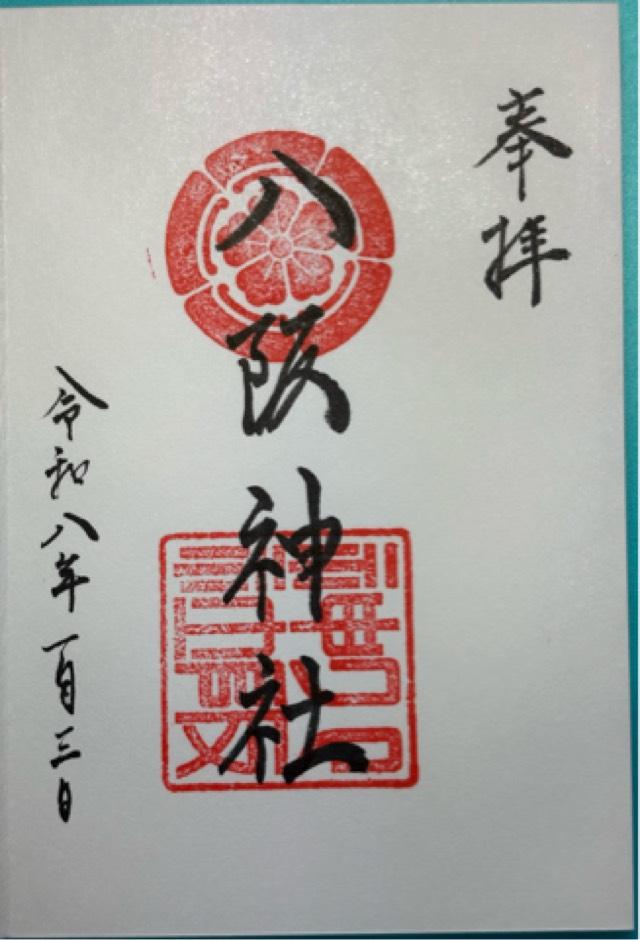 奉拝
八阪神社
令和八年一月三日